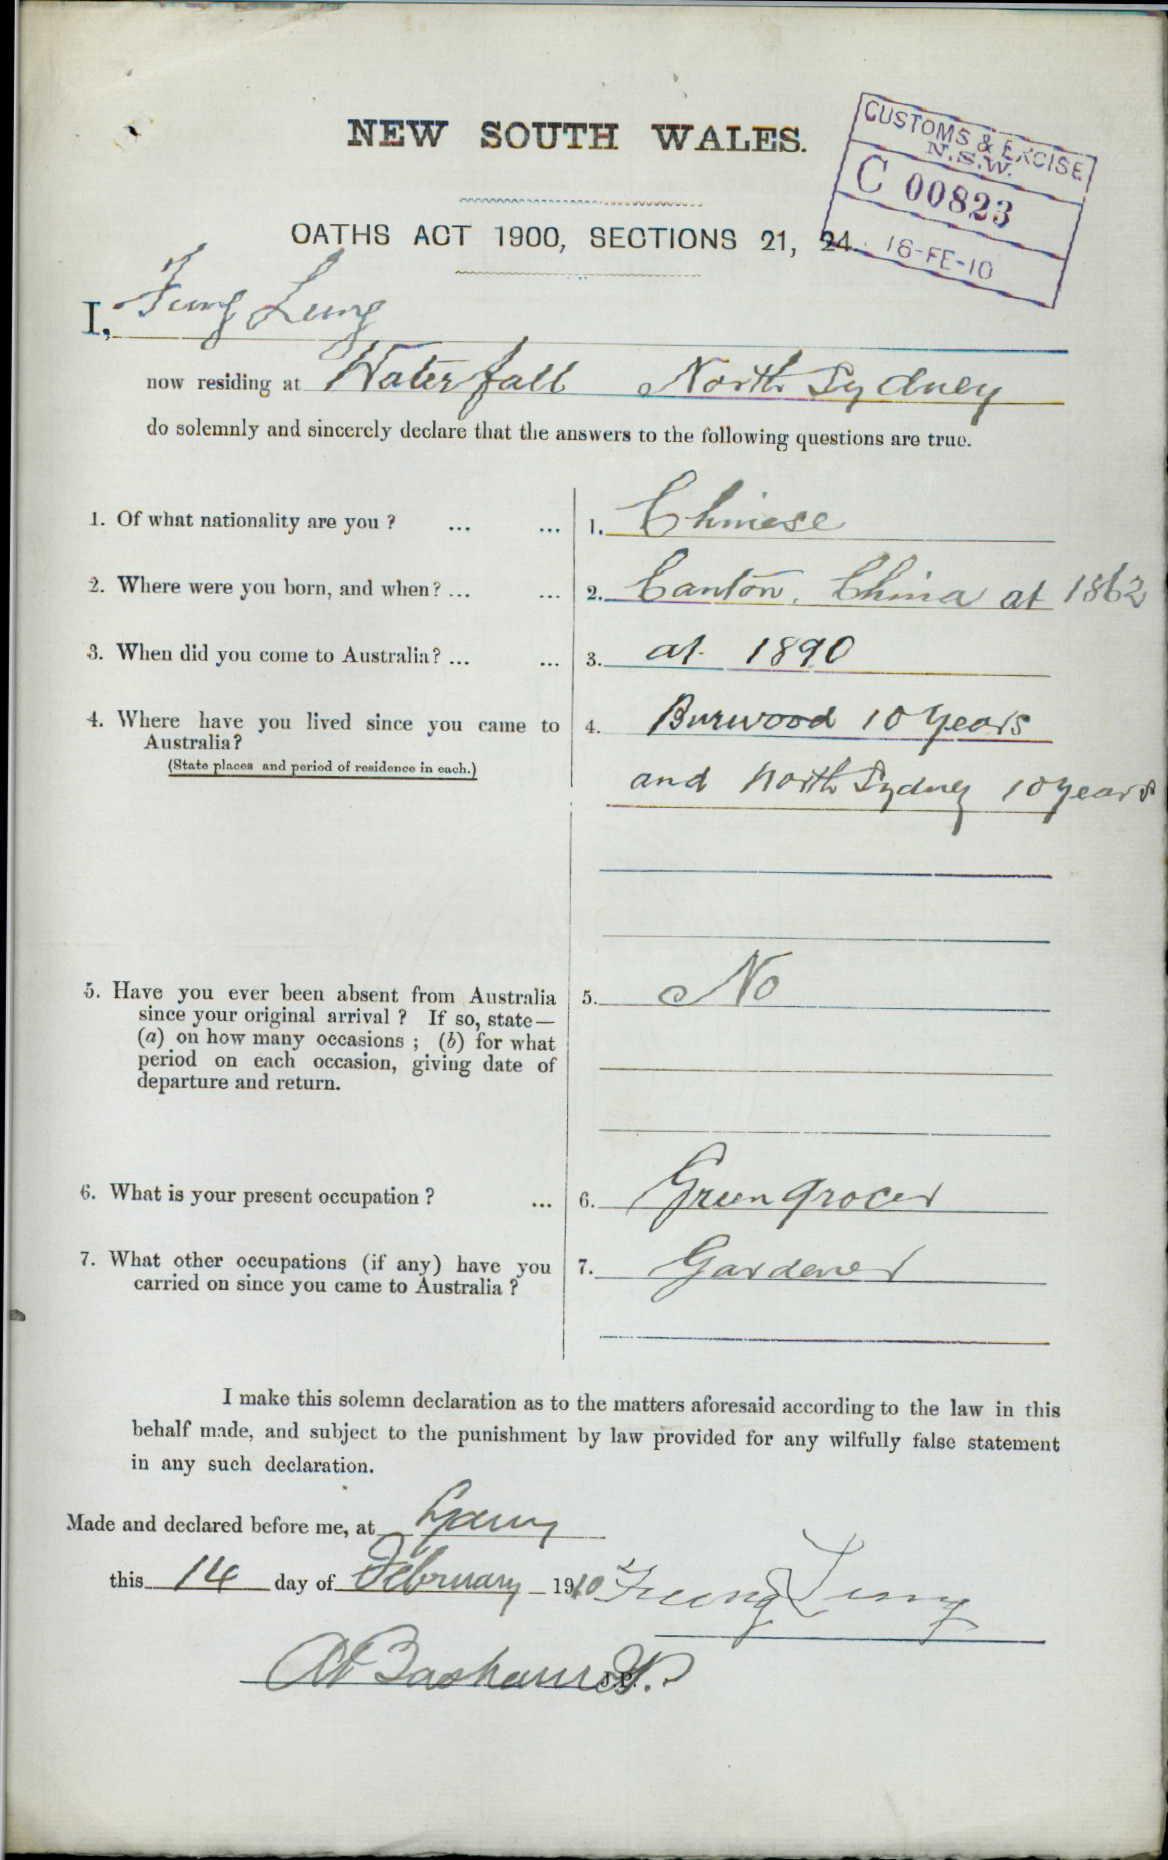 NEW SOUTH WALES.
CUSTOMS & EXCISE
N.S.W.
C 00823
16-FE-10
OATHS ACT 1900, SECTIONS 21, 24.
I, Fung Lung
now residing at Waterfall North Sydney
do solemnly and sincerely declare that the answers to the following questions are true.
1. Of what nationality are you ? ... ... 1. Chinese
2. Where were you born, and when? ... ... 2. Canton, China at 1862
3. When did you come to Australia? ... ... 3. at 1890
4. Where have you lived since you came to 4. Burwood 10 years
Australia?
(State places and period of residence in each.)
and North Sydney 10 years
5. Have you ever been absent from Australia 5. No
since your original arrival ? If so, state—
(a) on how many occasions ; (b) for what
period on each occasion, giving date of
departure and return.
6. What is your present occupation ? ... 6. Green grocer
7. What other occupations (if any) have you 7. Gardener
carried on since you came to Australia ?
I make this solemn declaration as to the matters aforesaid according to the law in this
behalf made, and subject to the punishment by law provided for any wilfully false statement
in any such declaration.
Made and declared before me, at
this 14 day of February 1910 Fung Lung
J.P.